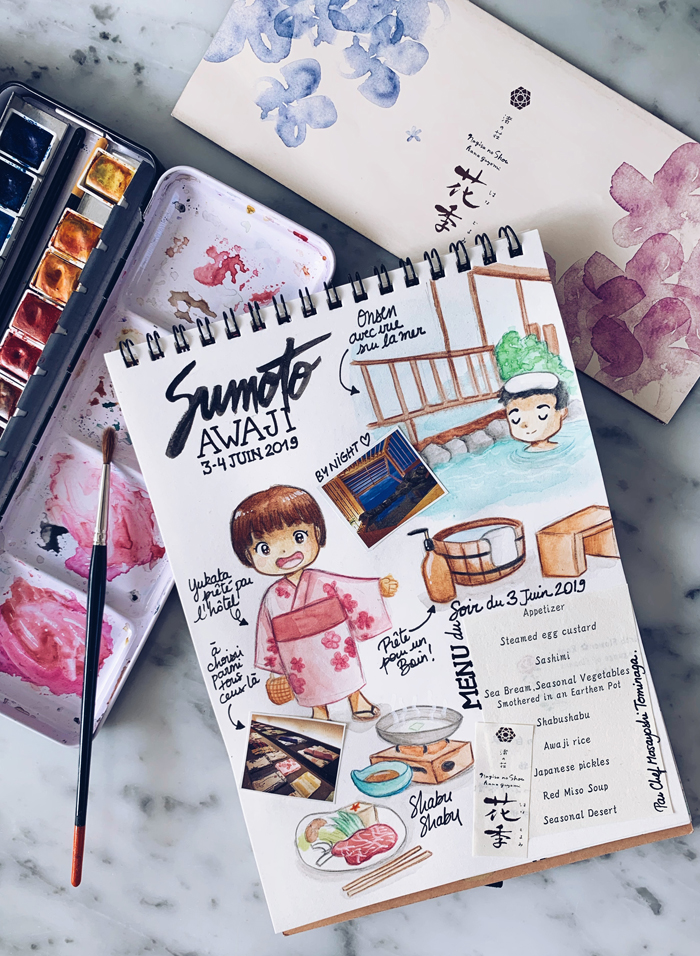 渚の荘
Nagisa no Shou
Hana goyomi
花季
Onsen
avec vue
sur la mer
Sumoto
AWAJI
3-4 JUIN 2019
BY NIGHT ♡
Yukata
prêté par
l'hôtel
à
choisir
parmi
tous
ceux là
Prête
pour un
Bain!
MENU du Soir du 3 Juin 2019
Appetizer
Steamed egg custard
Sashimi
Sea Bream, Seasonal Vegetables
Smothered in an Earthen Pot
Shabushabu
Awaji rice
Japanese pickles
Red Miso Soup
Seasonal Desert
Par Chef Masayoshi Tominaga.
渚の荘
Nagisa no Shou
Hana goyomi
花季
はなごよみ
Shabu
Shabu